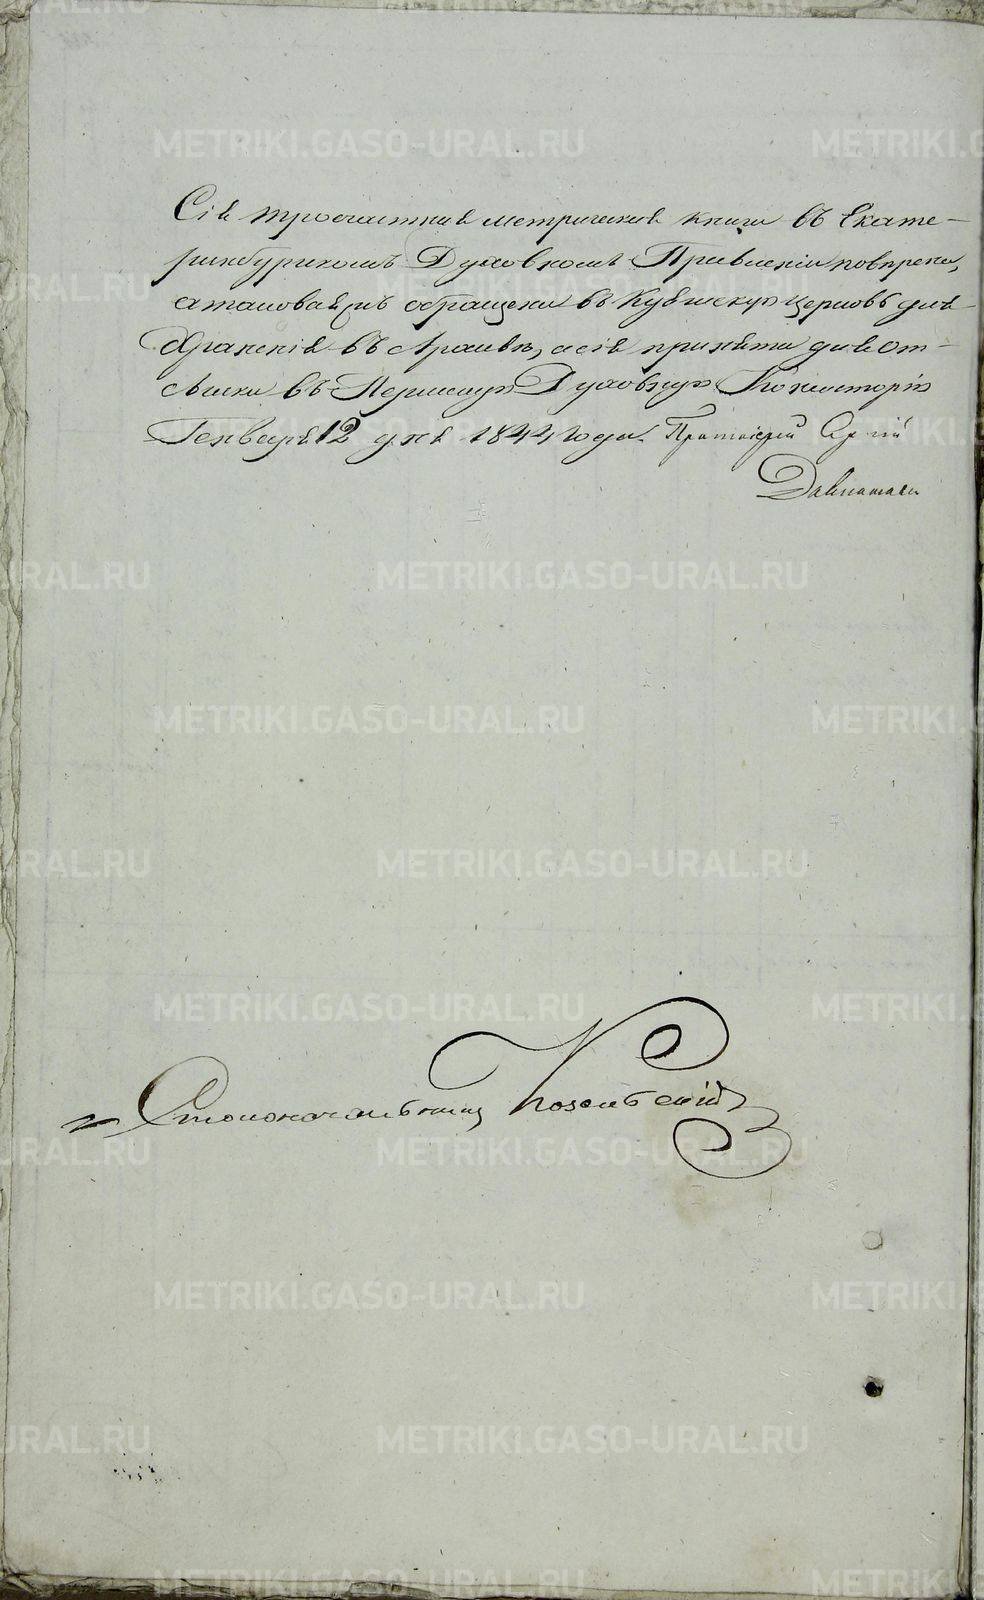 Сіи троечастныя метрическія книги въ Екате-
ринбургскомъ Духовномъ Правленіи повѣрены,
а таковыя жъ обращены въ церковь для
храненія въ Архивѣ, а сіи приняты для от-
сылки въ Пермскую Духовную Консисторію
Генваря 12 дня 1844 года. Протоіерей
Столоначальникъ
METRIKI.GASO-URAL.RU